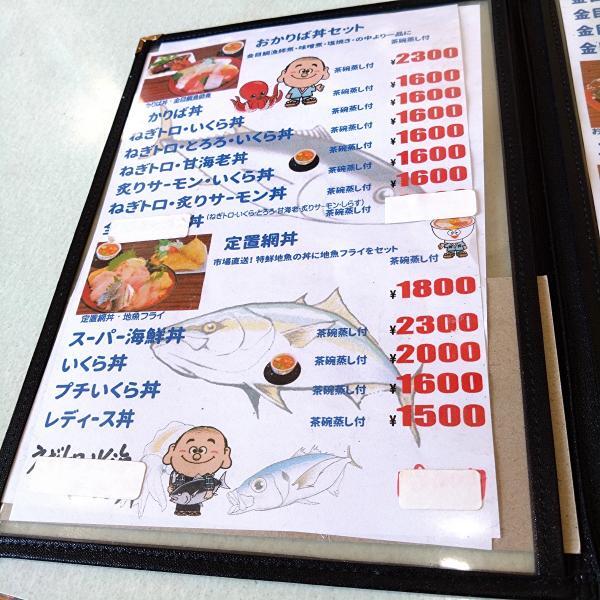 おかりば丼セット
金目鯛漁師煮・味噌煮・塩焼き・の中より一品に
茶碗蒸し付
¥2300
かりば丼・金目鯛漁師煮
かりば丼 茶碗蒸し付 ¥1600
ねぎトロ・いくら丼 ¥1600
ねぎトロ・とろろ・いくら丼 ¥1600
ねぎトロ・甘海老丼 茶碗蒸し付 ¥1600
炙りサーモン・いくら丼 茶碗蒸し付 ¥1600
ねぎトロ・炙りサーモン丼 茶碗蒸し付 ¥1600
丼 (ねぎトロ・いくら・とろろ・甘海老・炙りサーモン・しらす)
茶碗蒸し付
定置網丼
市場直送!特鮮地魚の丼に地魚フライをセット
茶碗蒸し付
¥1800
定置網丼・地魚フライ
スーパー海鮮丼 茶碗蒸し付 ¥2300
いくら丼 茶碗蒸し付 ¥2000
プチいくら丼 茶碗蒸し付 ¥1600
レディース丼 茶碗蒸し付 ¥1500
金目
金目
金目